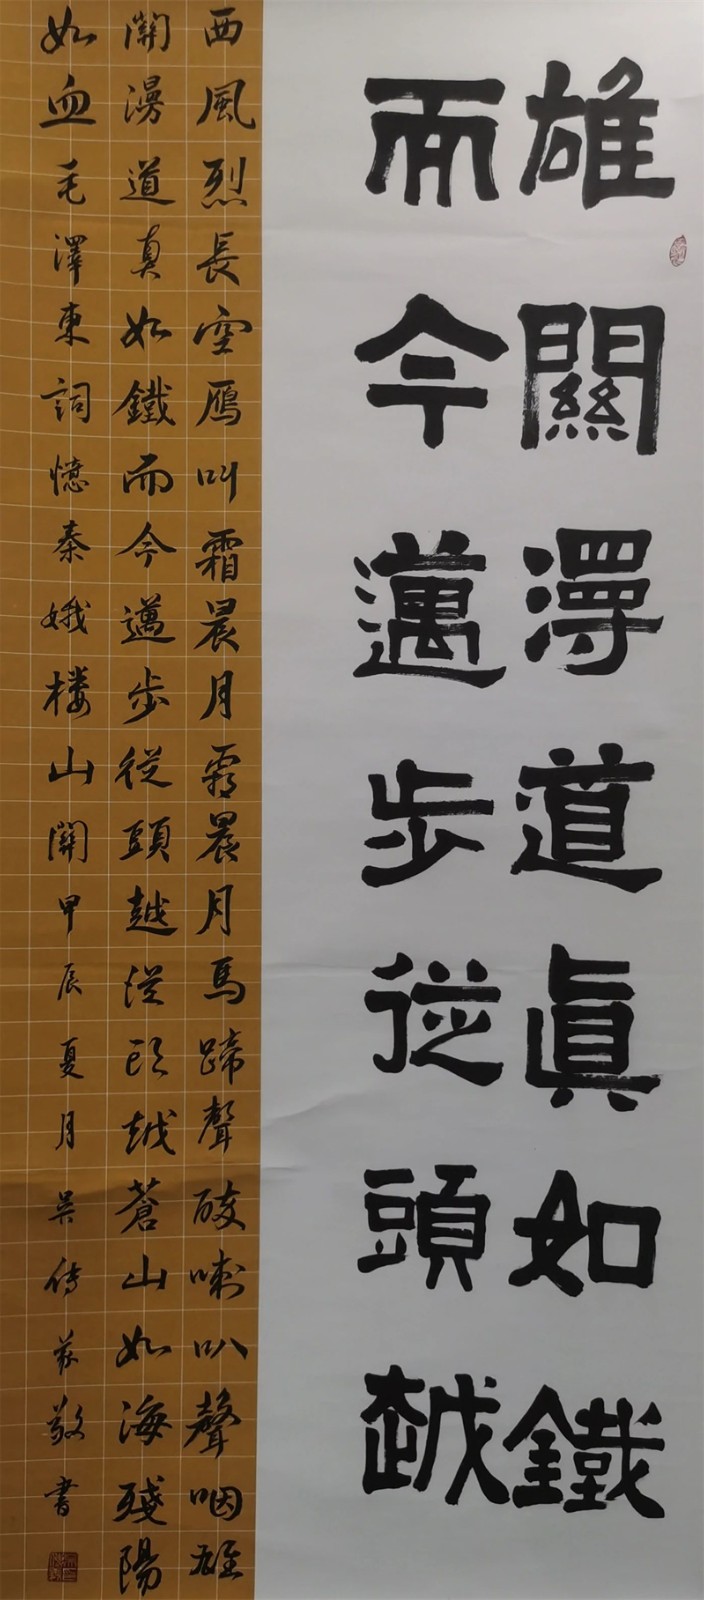 雄關漫道真如鐵
而今邁步從頭越
西風烈長空雁叫霜晨月霜晨月馬蹄聲碎喇叭聲咽雄
關漫道真如鐵而今邁步從頭越從頭越蒼山如海殘陽
如血毛澤東詞憶秦娥楼山關甲辰夏月吴传敬書